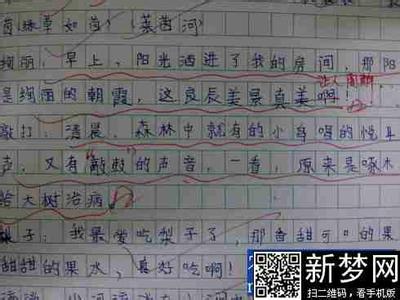 茵绿草如茵）（莱茵河）
绚丽：早上，阳光洒进了我的房间，那阳
是绚丽的朝霞，这良辰美景真美啊！
敲打：清晨，森林中就有的小鸟唱的悦耳
声，又有“敲鼓”的声音，一看，原来是啄木
给大树治病。
梨子：我最爱吃梨子了，那香甜可口的果
甜甜的果水，真好吃啊！
新梦网
扫二维码，看手机版